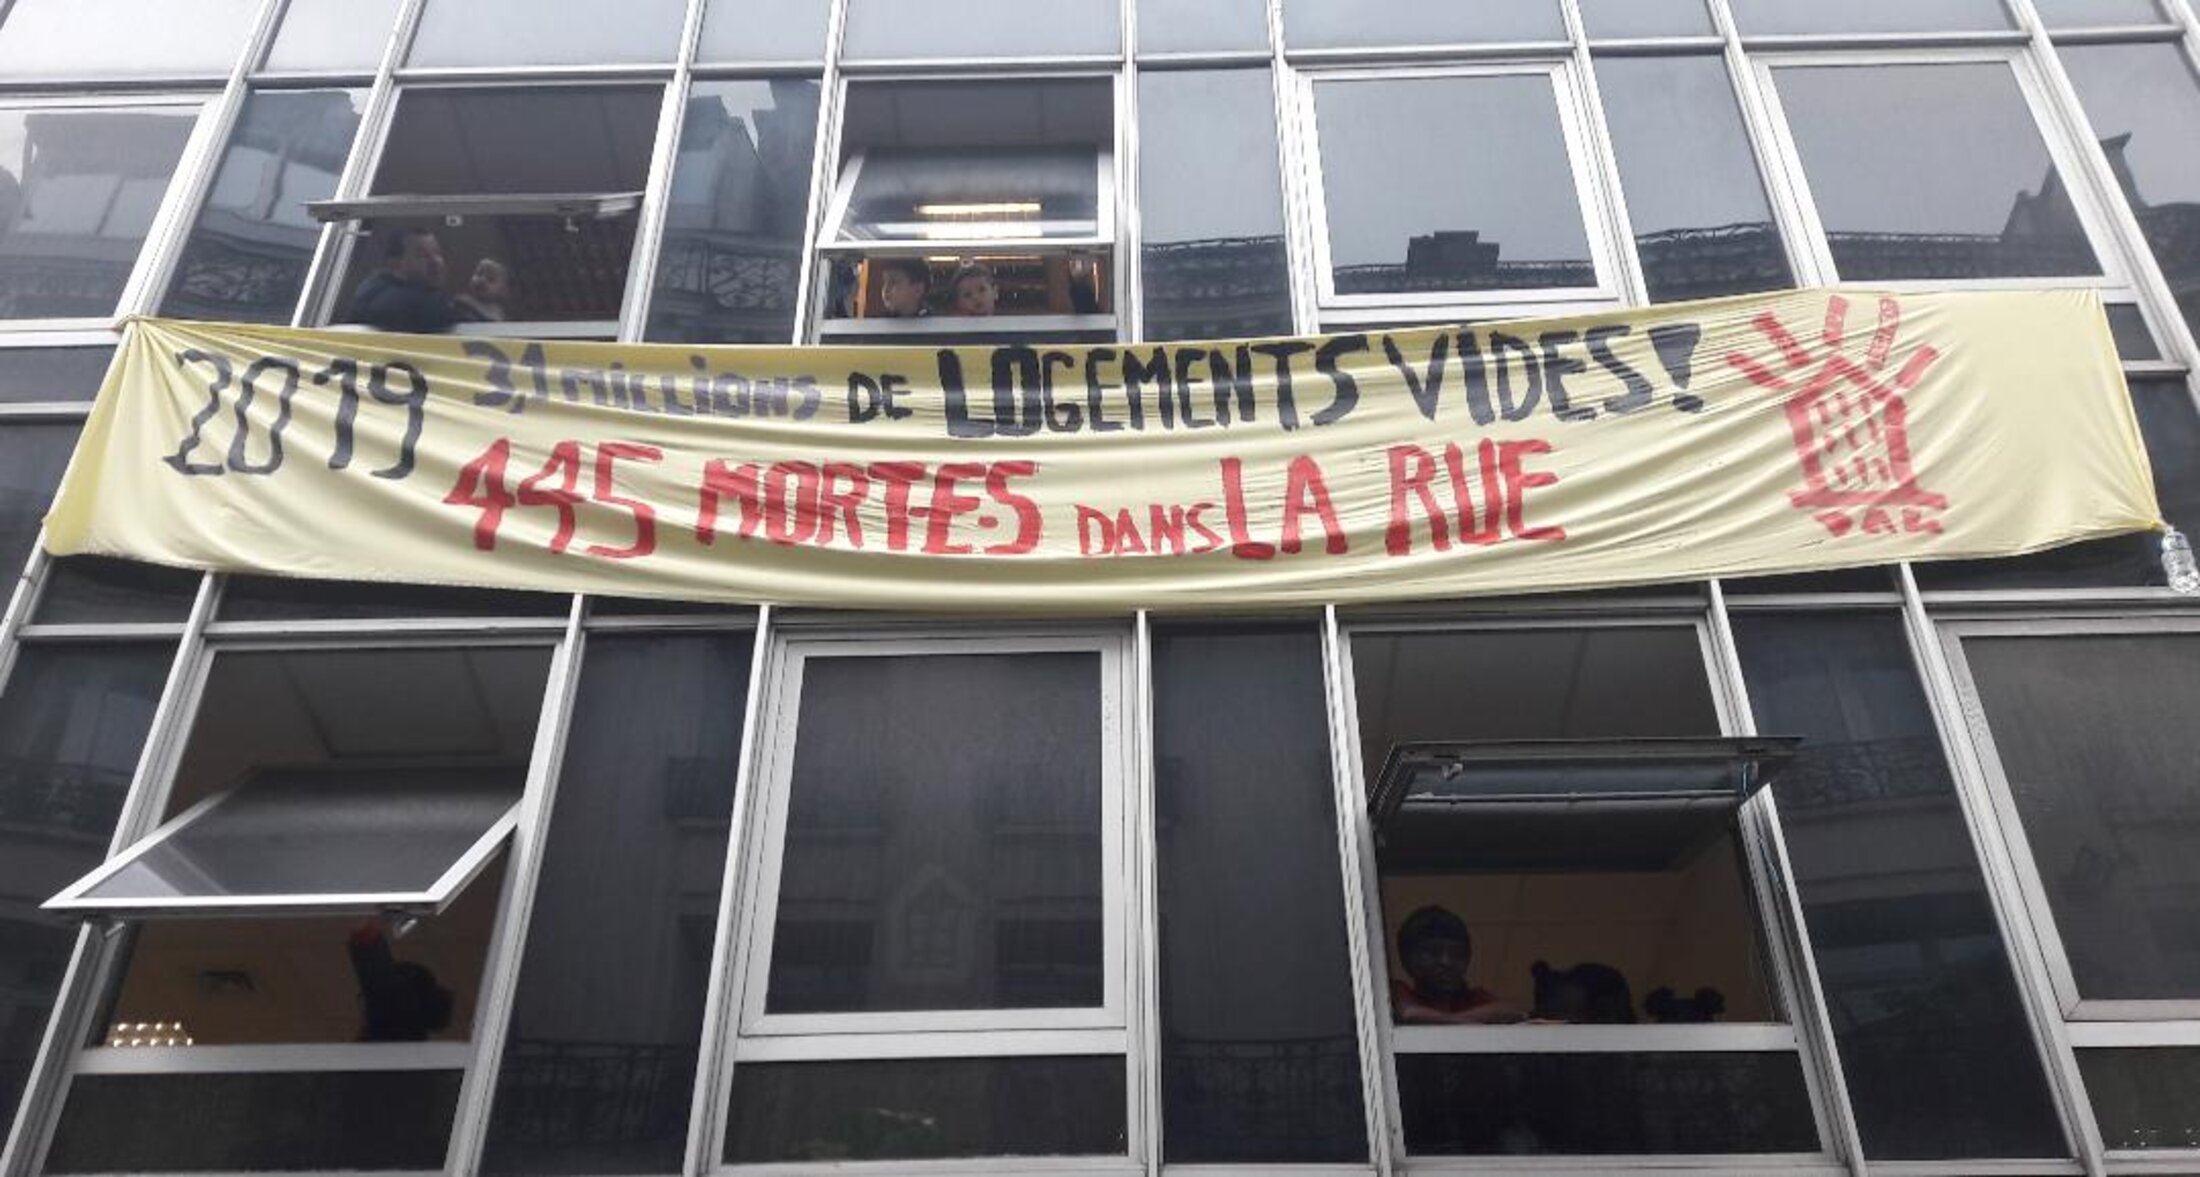 2019 3,1 MILLIONS DE LOGEMENTS VIDES!
445 MORT·E·S DANS LA RUE
DAL